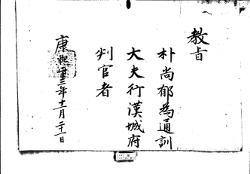 教旨
朴尚郁為通訓
大夫行漢城府
判官者
康熙三年十一月二十一日